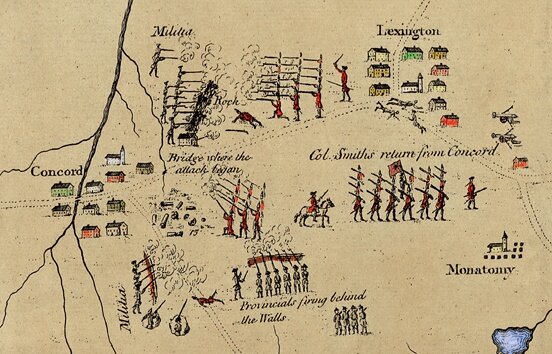 Militia
Lexington
Rock
Bridge where the
attack began
Col. Smiths return from Concord
Concord
Monatomy
Militia
Provincials firing behind
the Walls.